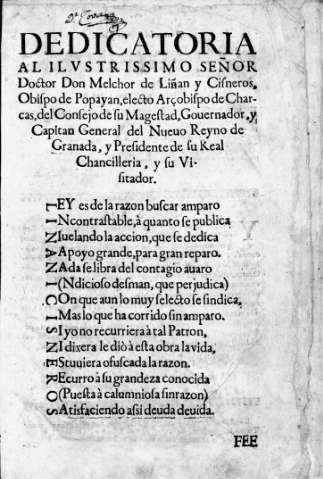 DEDICATORIA
AL ILVSTRISSIMO SEÑOR
Doctor Don Melchor de Liñan y Cisneros,
Obispo de Popayan, electo Arçobispo de Char-
cas, del Consejo de su Magestad, Gouernador, y
Capitan General del Nueuo Reyno de
Granada, y Presidente de su Real
Chancilleria, y su Vi-
sitador.
LEY es de la razon buscar amparo
INcontrastable, à quanto se publica
NIuelando la accion, que se dedica
APoyo grande, para gran reparo.
NAda se libra del contagio auaro
I(Ndicioso desman, que perjudica)
COn que aun lo muy selecto se sindica,
IMas lo que ha corrido sin amparo.
SI yo no recurriera à tal Patron,
NI dixera le diò à esta obra la vida,
EStuuiera ofuscada la razon.
REcurro à su grandeza conocida
O(Puesta à calumniosa sinrazon)
SAtisfaciendo assi deuda deuida.
FEE